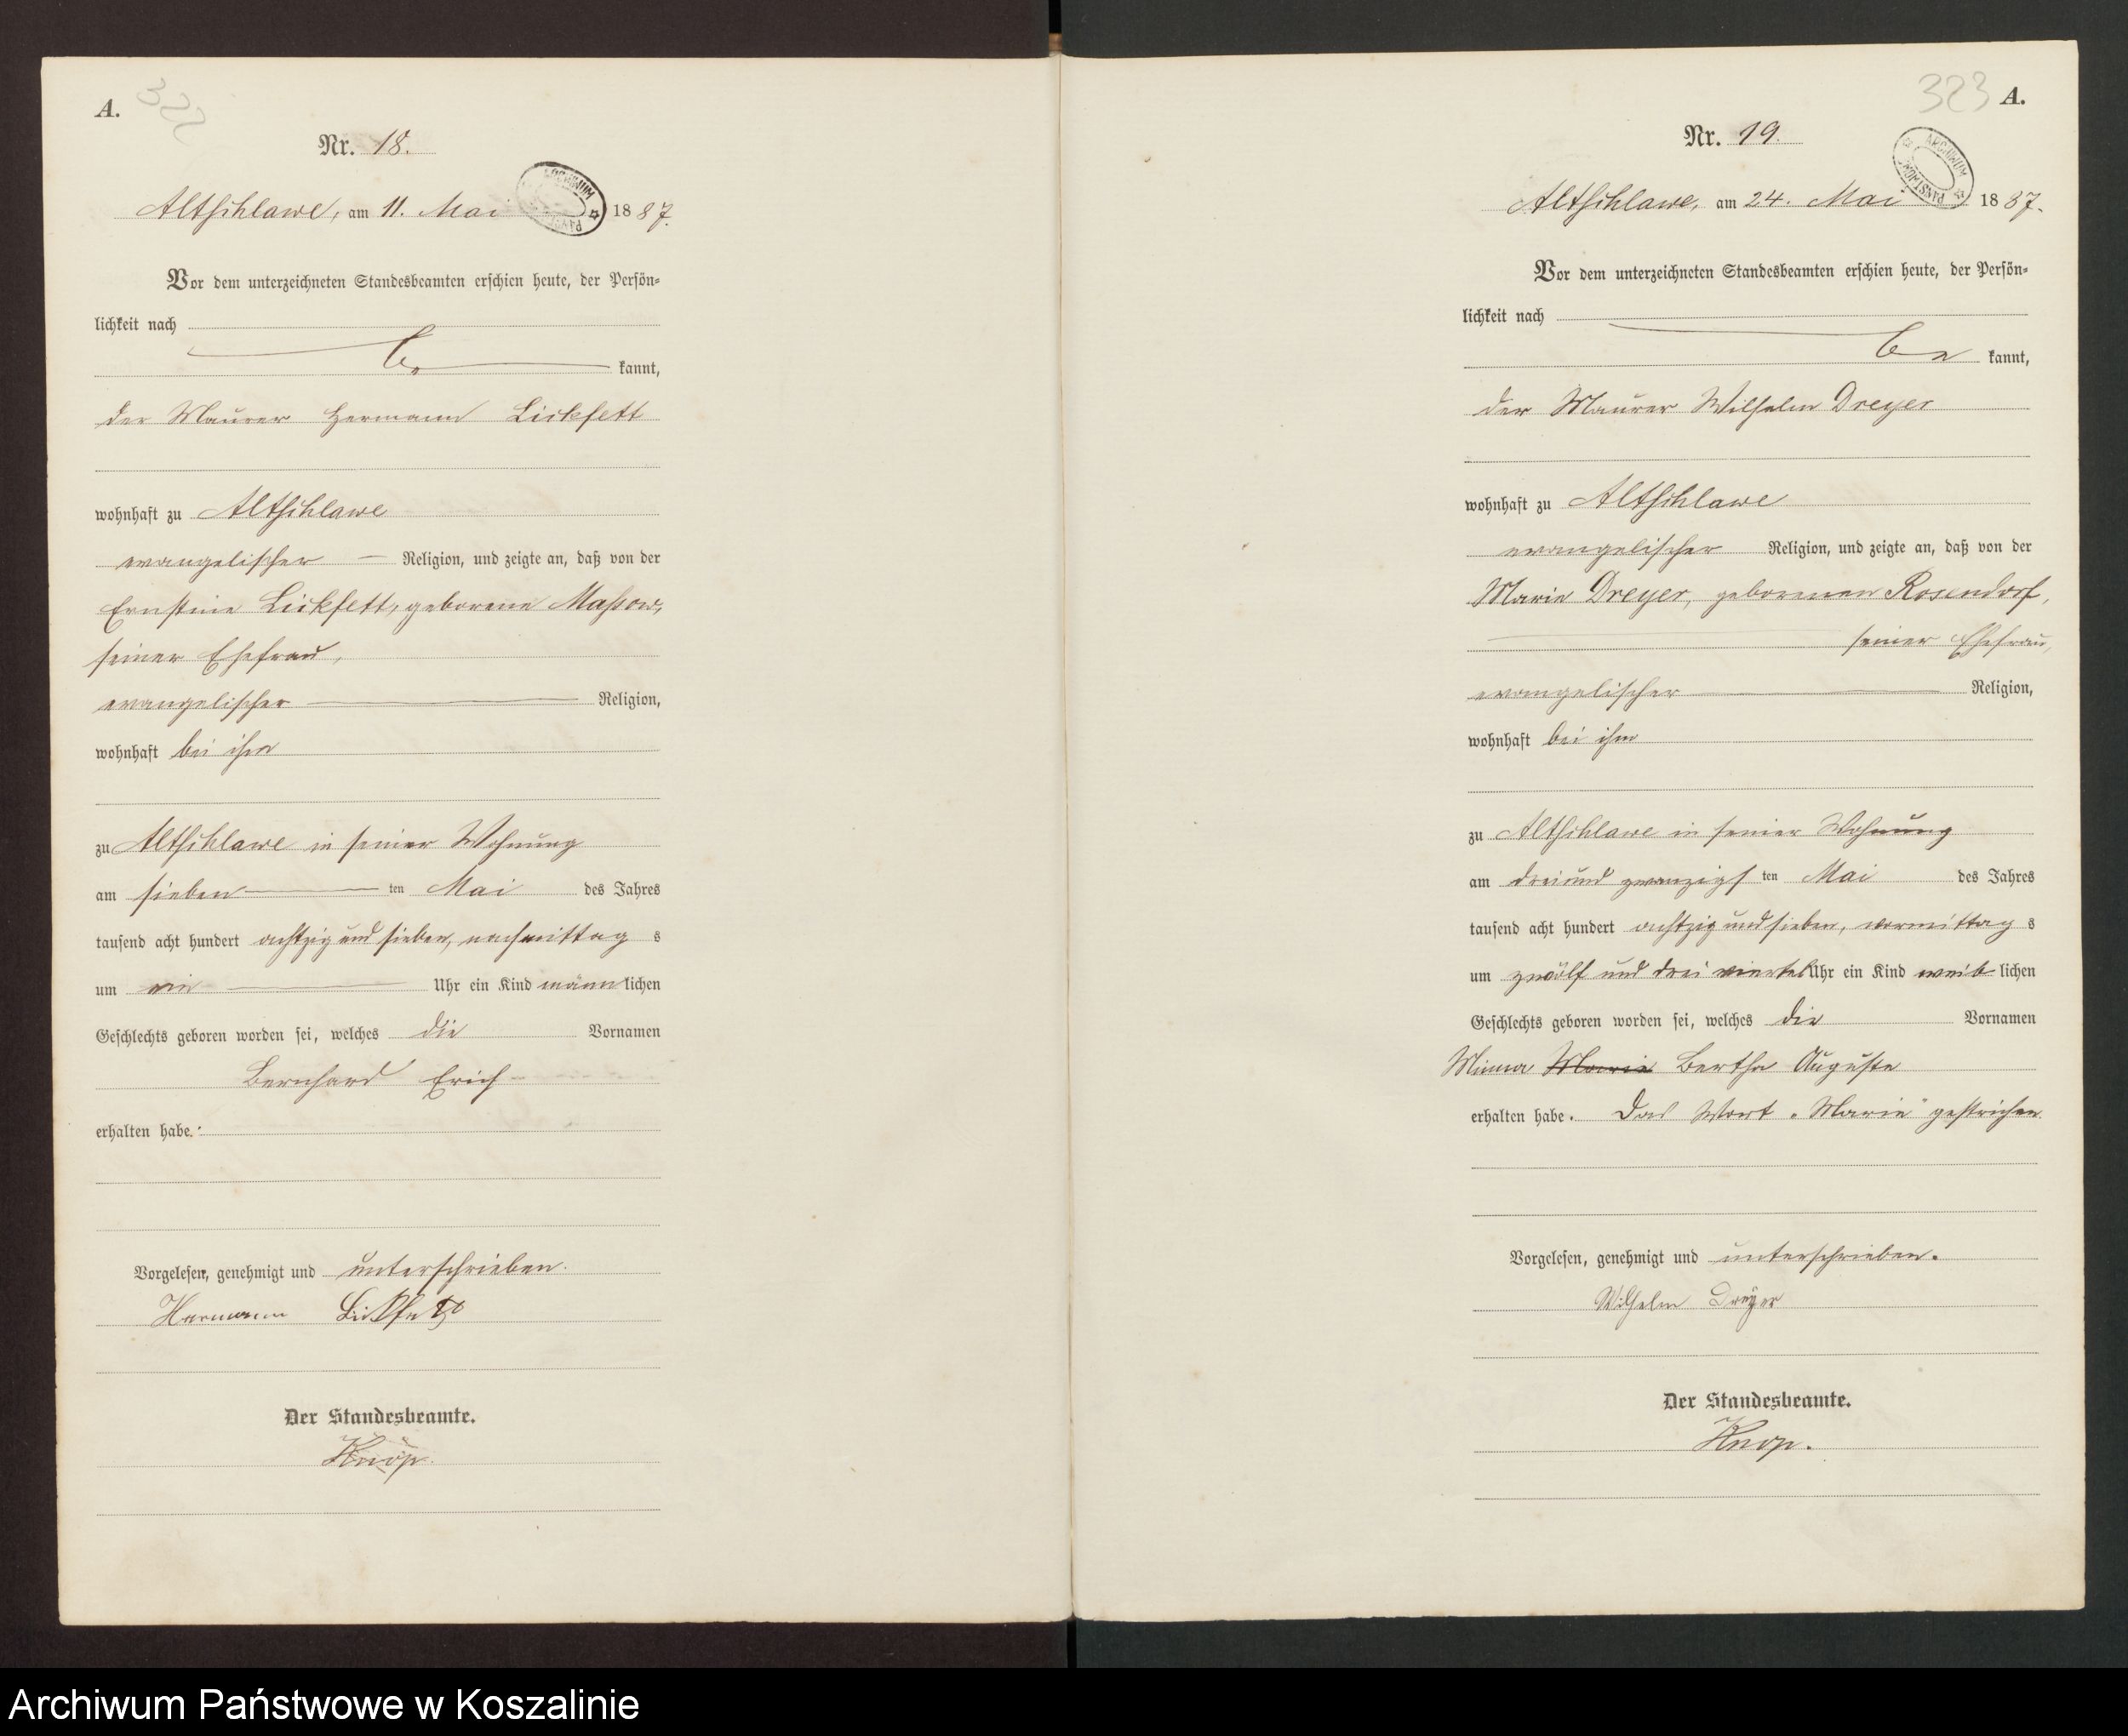 A. 322
Nr. 18.
Altschlawe, am 11. Mai 1887.
ARCHIWUM PAŃST
Vor dem unterzeichneten Standesbeamten erschien heute, der Persön=
lichkeit nach
be kannt,
der Maurer Hermann Lickfett
wohnhaft zu Altschlawe
evangelischer Religion, und zeigte an, daß von der
Ernstine Lickfett, geborene Massow,
seiner Ehefrau,
evangelischer Religion,
wohnhaft bei ihm
zu Altschlawe in seiner Wohnung
am sieben ten Mai des Jahres
tausend acht hundert achtzig und sieben, nachmittag s
um ein Uhr ein Kind männlichen
Geschlechts geboren worden sei, welches die Vornamen
Bernhard Erich
erhalten habe.
Vorgelesen, genehmigt und unterschrieben.
Hermann Lickfett
Der Standesbeamte.
Knop.
323 A.
Nr. 19.
ARCHIWUM PAŃSTWOWE
Altschlawe, am 24. Mai 1887.
Vor dem unterzeichneten Standesbeamten erschien heute, der Persön=
lichkeit nach
be kannt,
der Maurer Wilhelm Dreyer
wohnhaft zu Altschlawe
evangelischer Religion, und zeigte an, daß von der
Marie Dreyer, geborenen Rosendorf,
seiner Ehefrau,
evangelischer Religion,
wohnhaft bei ihm
zu Altschlawe in seiner Wohnung
am drei und zwanzigs ten Mai des Jahres
tausend acht hundert achtzig und sieben, vormittag s
um zwölf und drei viertel Uhr ein Kind weib lichen
Geschlechts geboren worden sei, welches die Vornamen
Minna Marie Bertha Auguste
erhalten habe. Das Wort „Marie" gestrichen.
Vorgelesen, genehmigt und unterschrieben.
Wilhelm Dreyer
Der Standesbeamte.
Knop.
Archiwum Państwowe w Koszalinie